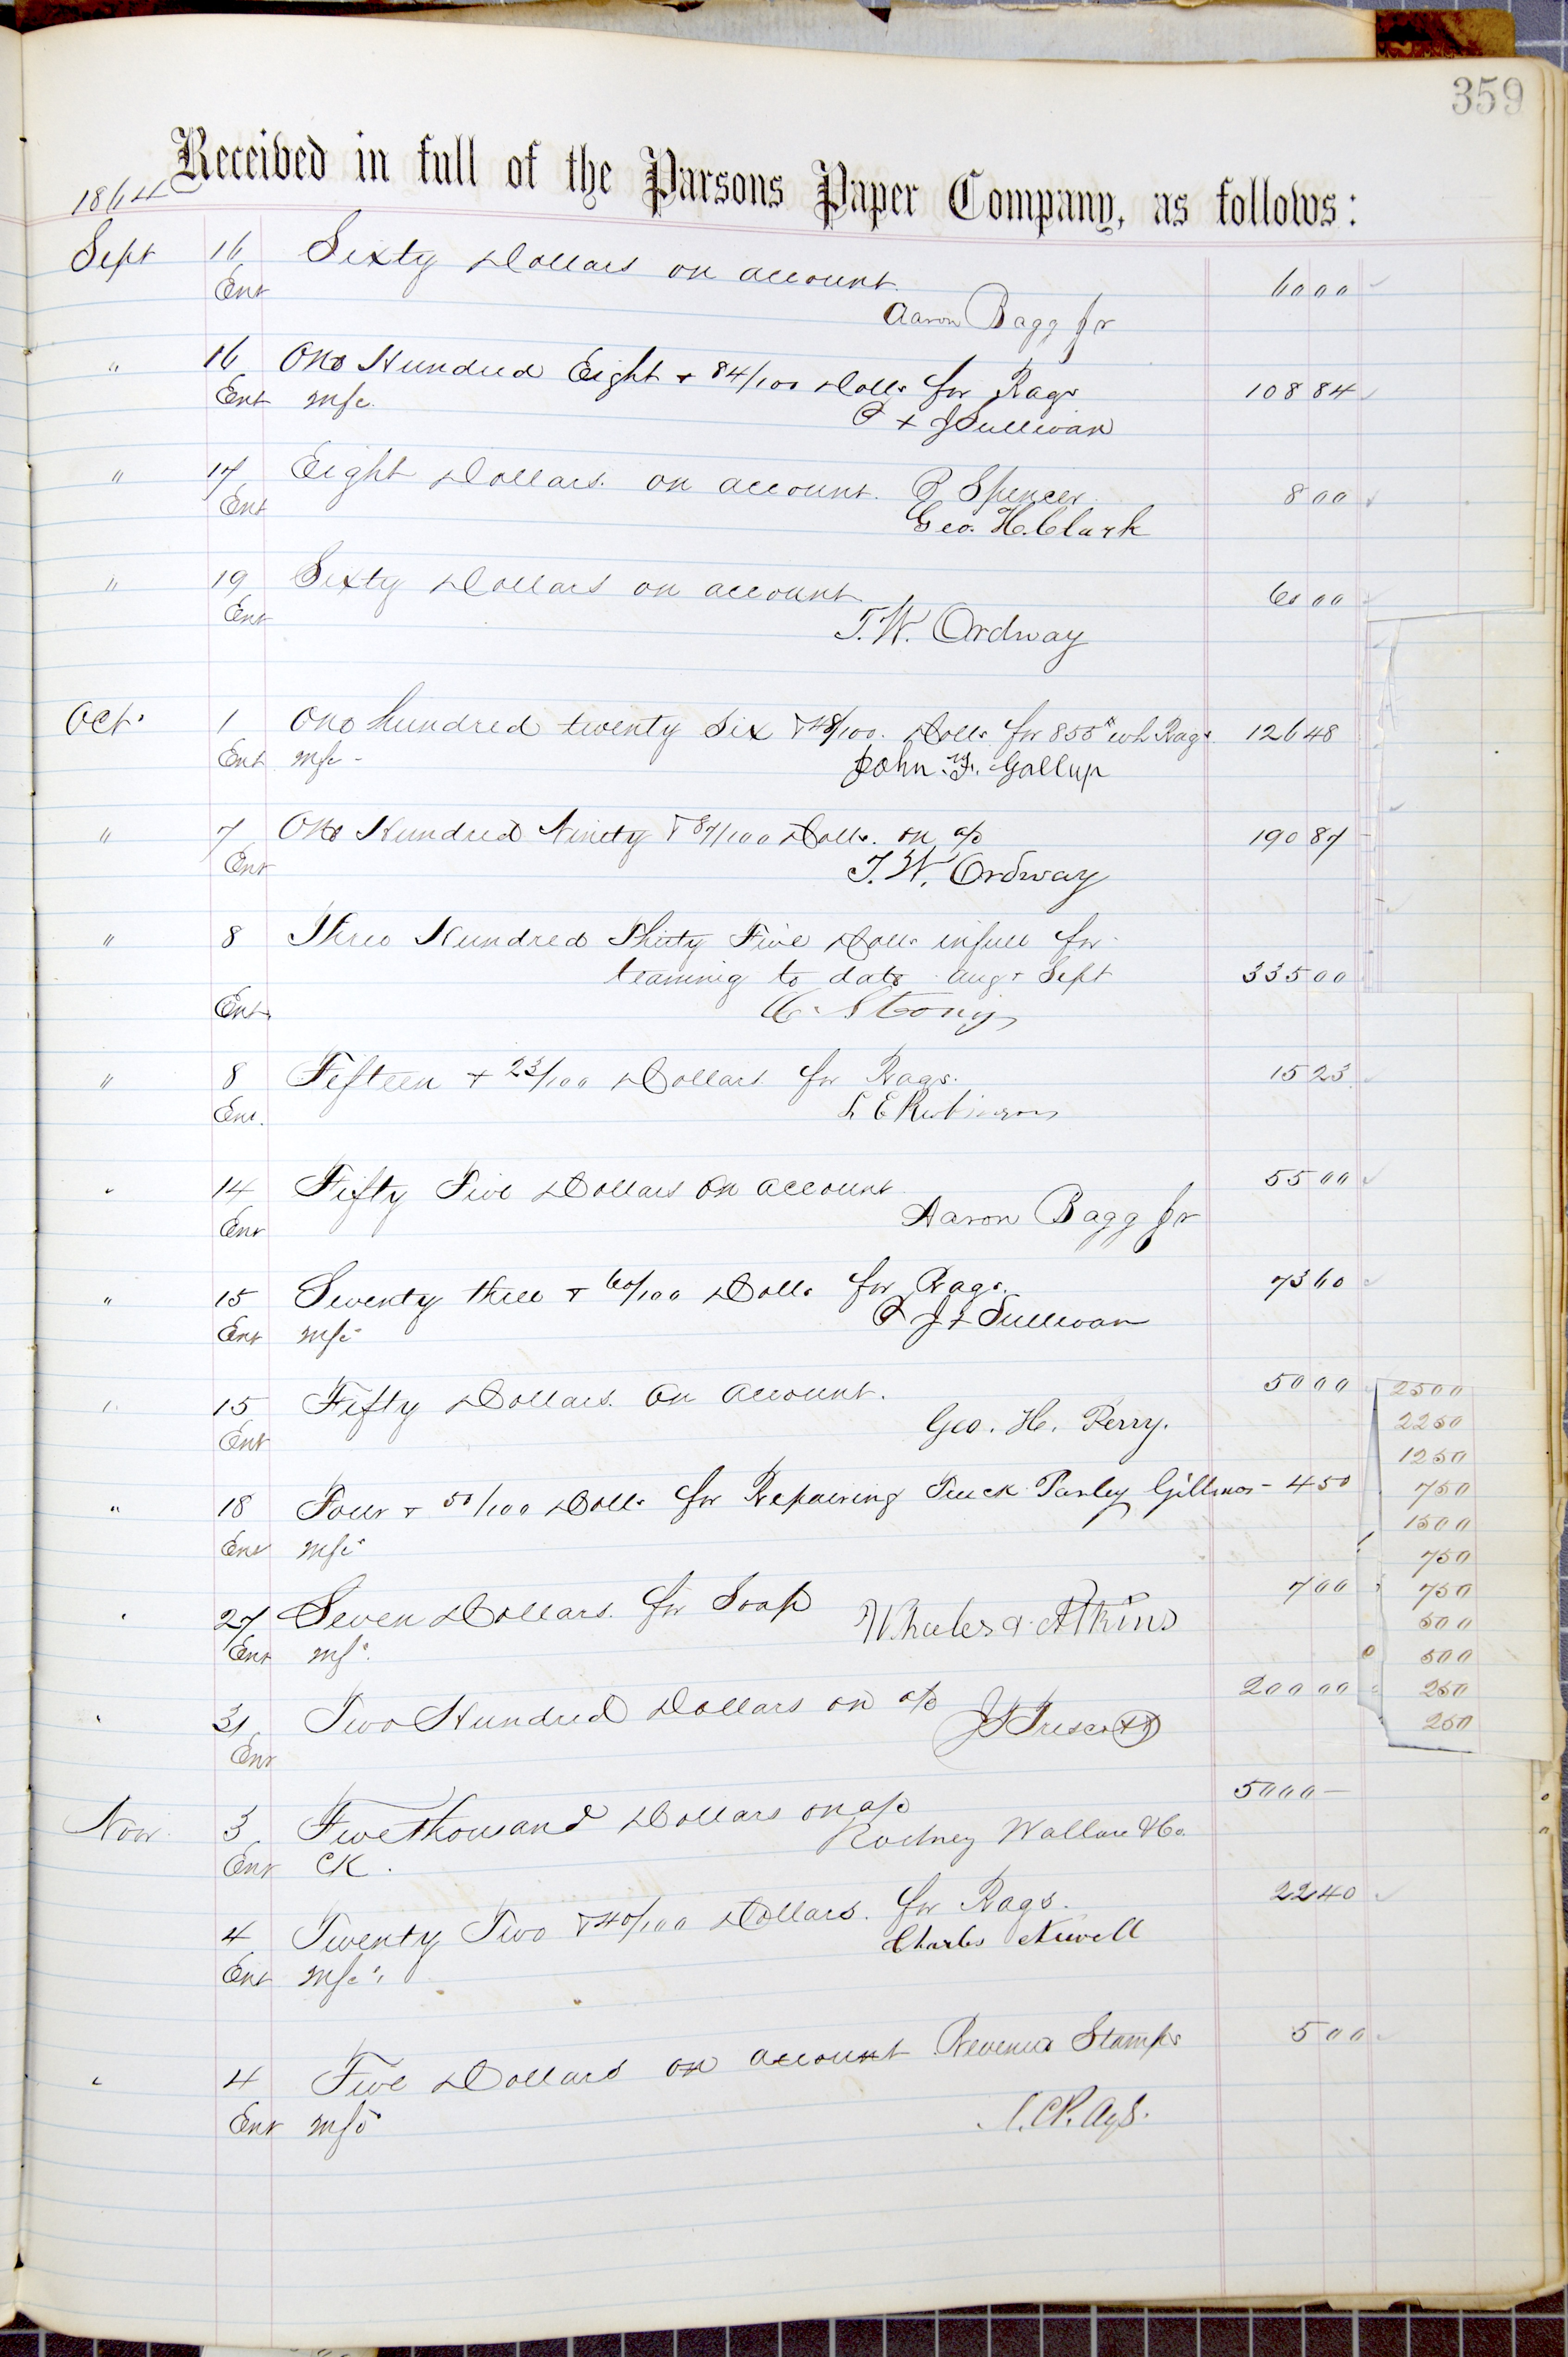 359
Received in full of the Parsons Paper Company, as follows:
1864
Sept 16 Sixty Dollars on account. 60 00
Ent Aaron Bagg Jr
" 16 One Hundred Eight + 84/100 Dolls for Rags 108 84
Ent Mse. P + J Sullivan
" 17 Eight Dollars. on account. R Spencer. 8 00
Ent Geo. H. Clark
" 19 Sixty Dollars on account 60 00
Ent T. W. Ordway
Oct. 1 One hundred twenty six + 48/100. Dolls for 855# wh Rags 126 48
Ent Mse - John. F. Gallup
" 7 One Hundred Ninety + 87/100 Dolls. on a/c 190 87
Ent T. W. Ordway
" 8 Three Hundred Thirty Five Dolls in full for
teaming to date Aug + Sept 335 00
Ent.
" 8 Fifteen + 23/100 Dollars for Rags. 15 23
Ent. L E Robinson
" 14 Fifty Five Dollars on account 55 00
Ent Aaron Bagg Jr
" 15 Seventy three + 60/100 Dolls for Rags. 73 60
Ent Mse P J + Sullivan
" 15 Fifty Dollars. On account. 50 00
Ent Geo. H. Perry.
" 18 Four + 50/100 Dolls for Repairing Truck Parley Gillmor - 4 50
Ent Mse
" 27 Seven Dollars. for Soap Wheeler & Atkins 7 00
Ent Mse.
" 31 Two Hundred Dollars on a/c J Prescott 200 00
Ent
Nov. 3 Five thousand Dollars on a/c 5000 -
Ent CK. Rodney Wallace & Co.
4 Twenty Two + 40/100 Dollars. for Rags. 22 40
Ent Mse. Charles Newell
" 4 Five Dollars on account Revenue Stamps 5 00
Ent Mse
25 00
22 50
12 50
7 50
15 00
7 50
7 50
5 00
5 00
2 50
2 50